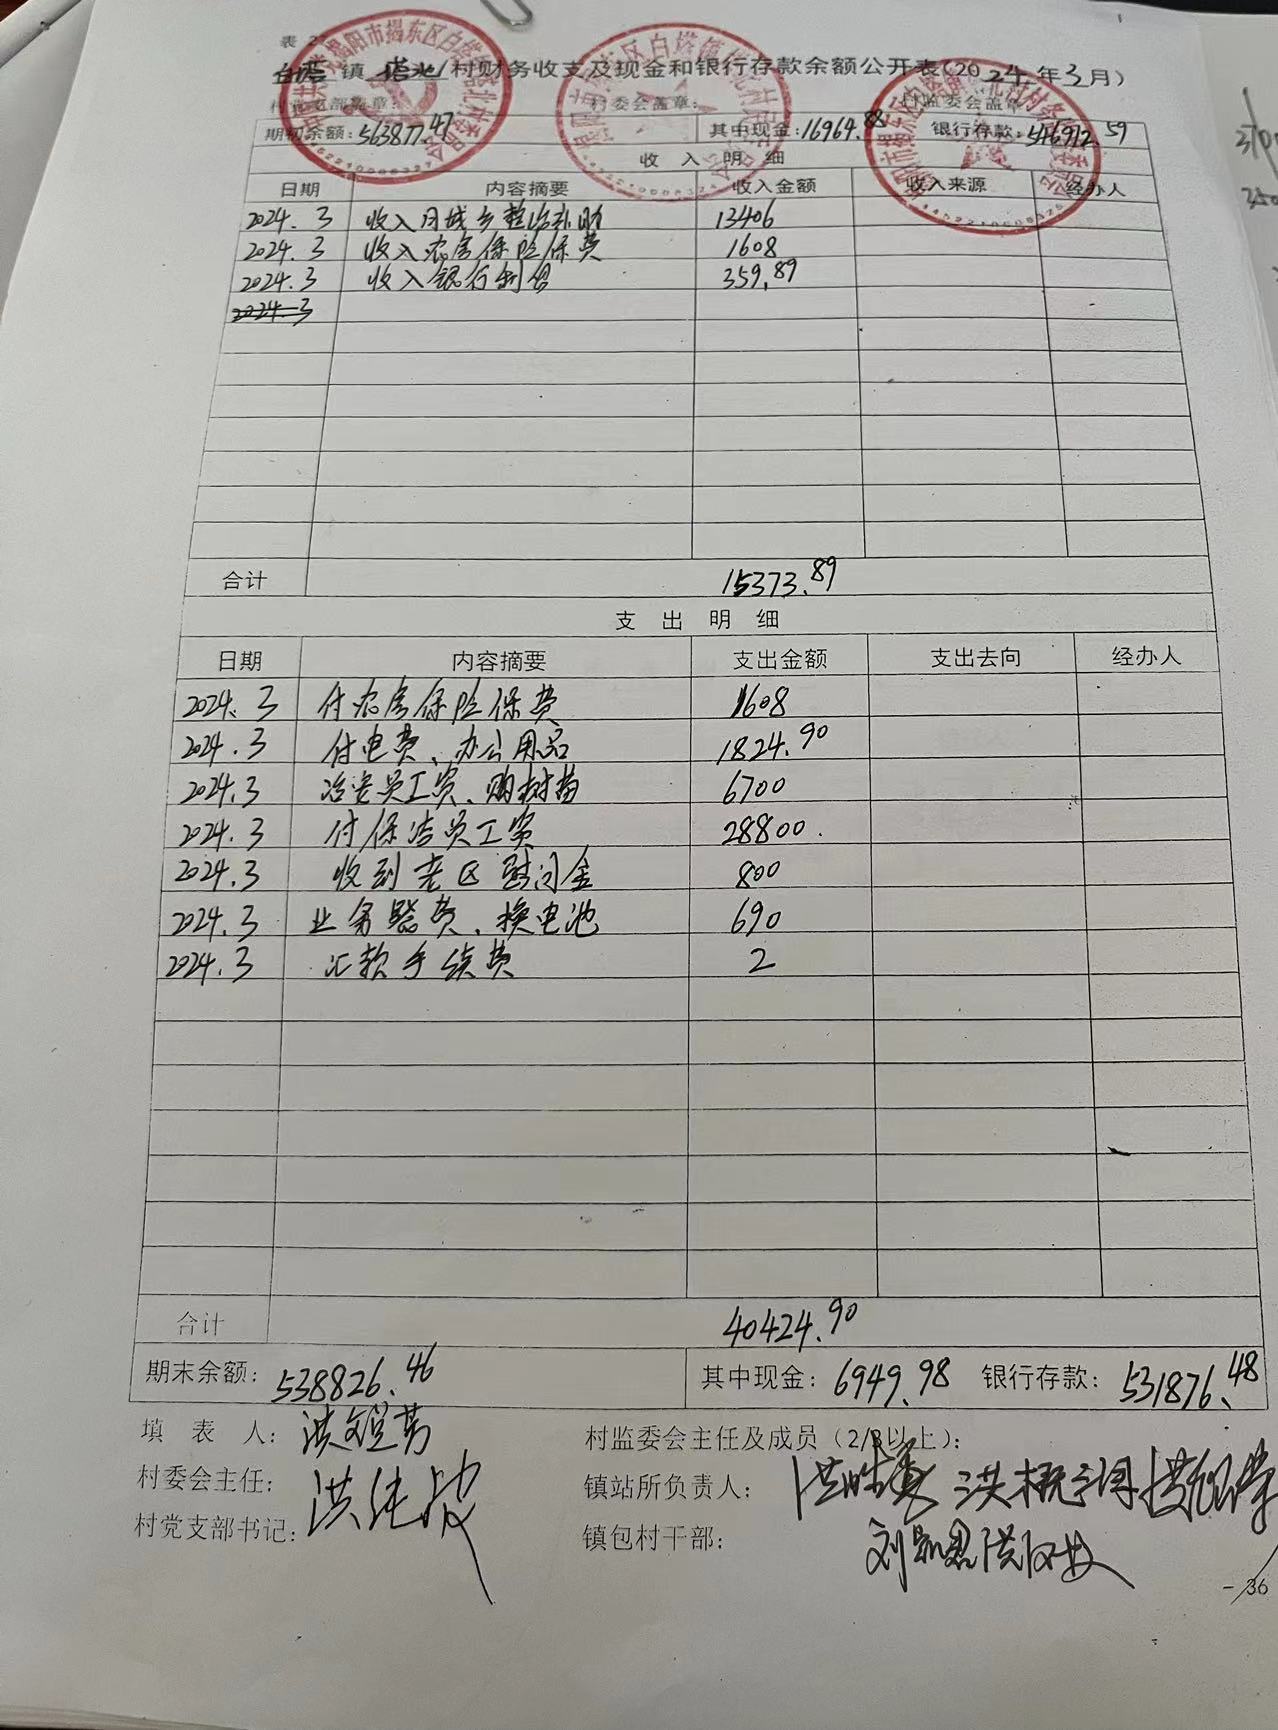 表 2
白塔 镇 塔北 村财务收支及现金和银行存款余额公开表(2024年3月)
村党支部盖章: 村委会盖章: 村监委会盖章
期初余额: 563877.47 其中现金: 16964.88 银行存款: 546912.59
收 入 明 细
日期 内容摘要 收入金额 收入来源 经办人
2024.3 收入 城乡整治补助 13406
2024.3 收入农房保险保费 1608
2024.3 收入银行利息 359.89
2024.3
合计 15373.89
支 出 明 细
日期 内容摘要 支出金额 支出去向 经办人
2024.3 付农房保险保费 1608
2024.3 付电费、办公用品 1824.90
2024.3 治安员工资、购树苗 6700
2024.3 付保洁员工资 28800.
2024.3 收到老区慰问金 800
2024.3 业务费、换电池 690
2024.3 汇款手续费 2
合计 40424.90
期末余额: 538826.46 其中现金: 6949.98 银行存款: 531876.48
填 表 人: 洪 村监委会主任及成员(2/3以上):
村委会主任: 洪 镇站所负责人: 洪
村党支部书记: 镇包村干部: 刘
- 36